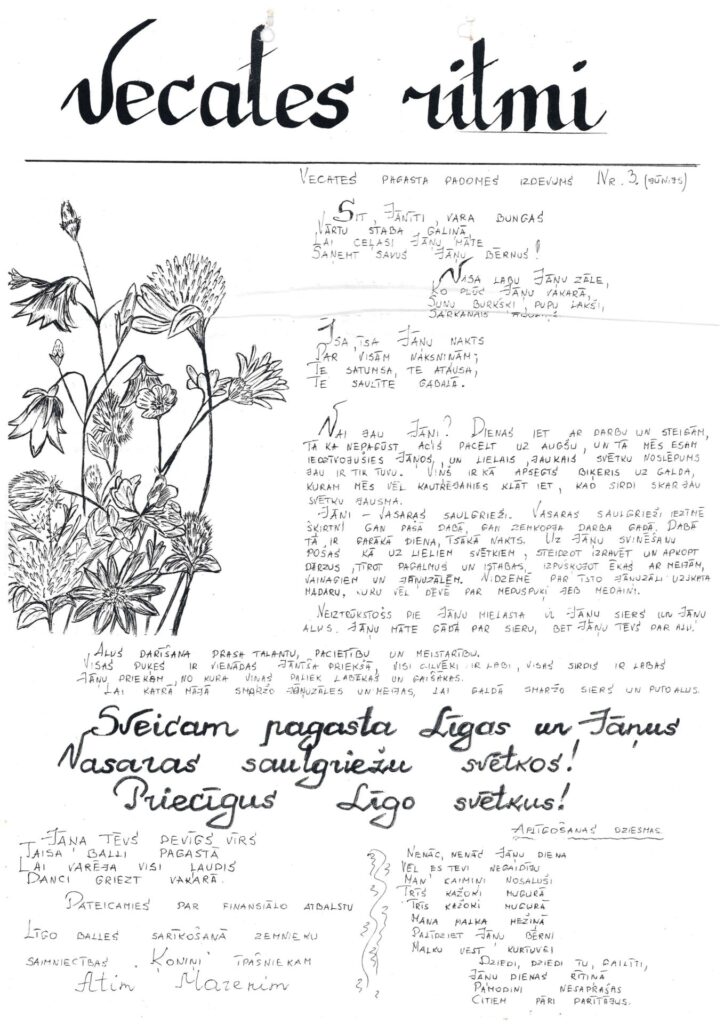 Vecates ritmi
Vecates pagasta padomes izdevums Nr. 3. (jūnijs)
Sit, Jānīti, vara bungas
Vārtu staba galiņā,
Lai ceļasi Jāņu māte
Saņemt savus Jāņu bērnus!
Visa laba Jāņu zāle,
Ko plūc Jāņu vakarā,
Suņu burkški, pupu lakši,
Sarkanais
Īsa, īsa Jāņu nakts
Par visām naksniņām;
Te satumsa, te atausa,
Te saulīte gabalā.
Vai jau Jāņi? Dienas iet ar darbu un steigām,
tā ka nepagūst acis pacelt uz augšu, un tā mēs esam
iedzīvojušies Jāņos, un lielais, jaukais svētku noslēpums
jau ir tik tuvu. Viņš ir kā apsegts biķeris uz galda,
kuram mēs vēl kautrējamies klāt iet, kad sirdi skar jau
svētku jausma.
Jāņi - vasaras saulgrieži. Vasaras saulgrieži iezīmē
šķirtni gan pašā dabā, gan zemkopja darba gadā. Dabā
tā ir garākā diena, īsākā nakts. Uz Jāņu svinēšanu
pošas kā uz lieliem svētkiem, steidzot izravēt un apkopt
dārzus, tīrot pagalmus un istabas, izpuškojot ēkas ar meijām,
vainagiem un jāņuzālēm. Vidzemē par īsto jāņuzāli uzskata
madaru, kuru vēl dēvē par meduspuķi jeb medaini.
Neiztrūkstošs pie Jāņu mielasta ir Jāņu siers un Jāņu
alus. Jāņu māte gādā par sieru, bet Jāņu tēvs par alu.
Alus darīšana prasa talantu, pacietību un meistarību.
Visas puķes ir vienādas Jānīša priekšā, visi cilvēki ir labi, visas sirdis ir labas
Jāņu priekam, no kura viņas paliek labākas un gaišākas.
Lai katrā mājā smaržo jāņuzāles un meijas, lai galdā smaržo siers un puto alus.
Sveicam pagasta Līgas un Jāņus
Vasaras saulgriežu svētkos!
Priecīgus Līgo svētkus!
Jāņa tēvs devīgs vīrs
Taisa balli pagastā
Lai varēja visi ļaudis
Danci griezt vakarā.
Pateicamies par finansiālo atbalstu
Līgo balles sarīkošanā zemnieku
saimniecības "Ķoniņi" īpašniekam
Atim Mazenim
Aplīgošanas dziesmas.
Nenāc, nenāc Jāņu diena
Vēl es tevi negaidīju
Man' kaimiņi nosaluši
Trīs kažoki mugurā
Trīs kažoki mugurā
Mana malka mežiņā
Palīdziet Jāņu bērni
Malku vest kurtuvei
Dziedi, dziedi tu, gailīti,
Jāņu dienas rītiņā
Pamodini nesaprašas
Citiem pāri darītājus.